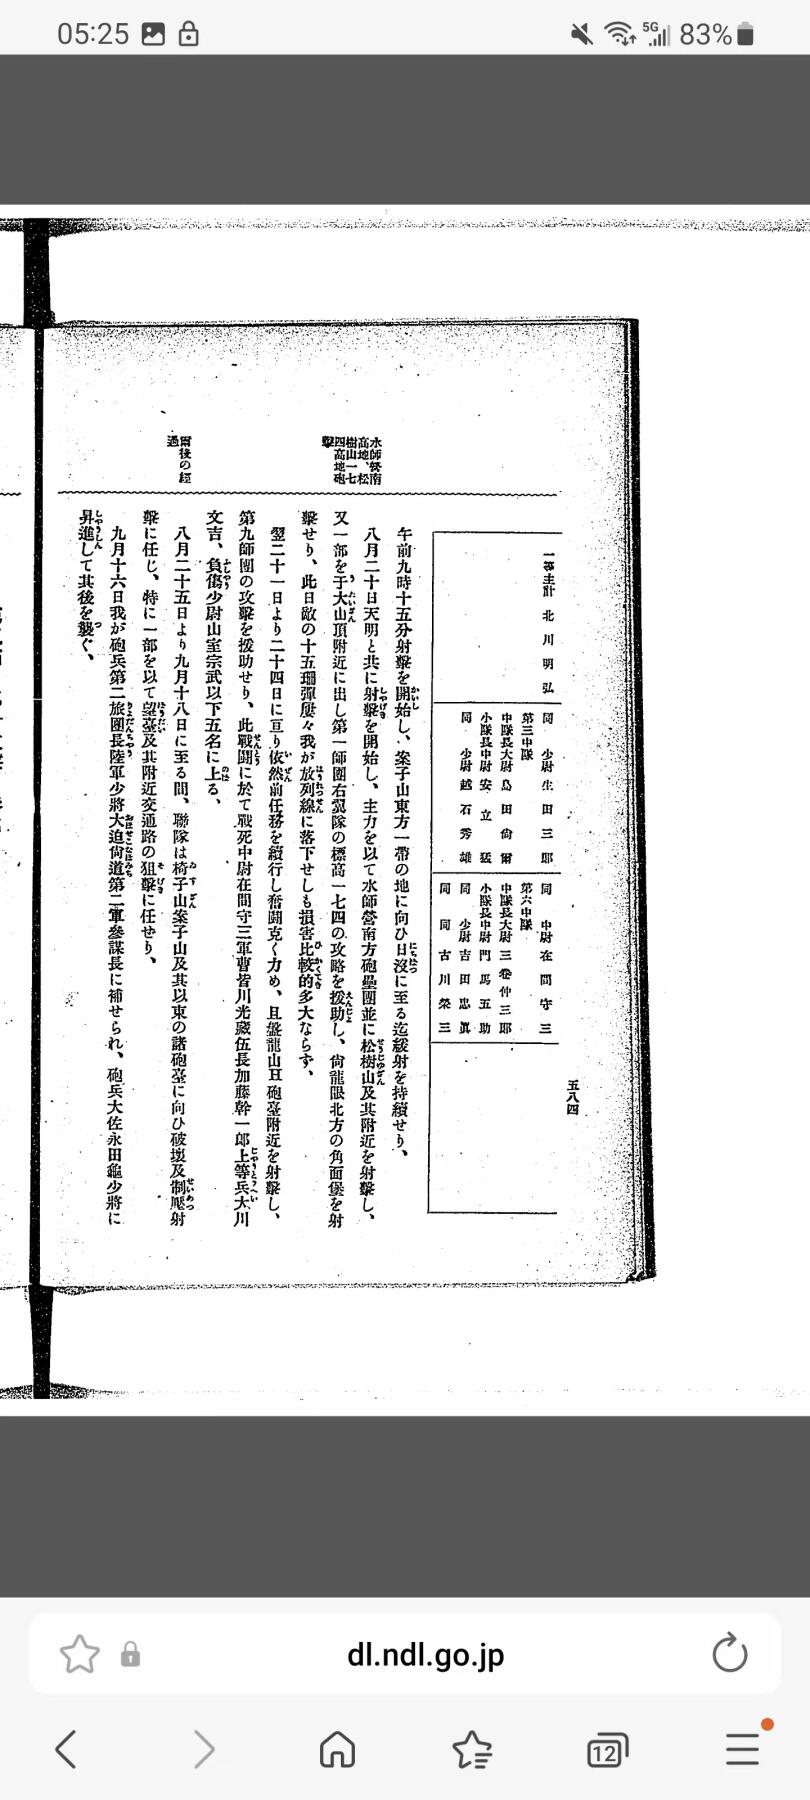 05:25
5G
83%
五八四
一等主計 北川明弘
同 少尉 生田三郎
第三中隊
中隊長大尉 島田尙爾
小隊長中尉 安立猛
同 少尉 越石秀雄
同 中尉 在間守三
第六中隊
中隊長大尉 三卷仲三郎
小隊長中尉 門馬五助
同 少尉 吉田忠眞
同 同 古川榮三
水師營南
高地、松
樹山一七
四高地砲
擊
午前九時十五分射擊を開始し、案子山東方一帶の地に向ひ日沒に至る迄緩射を持續せり、
八月二十日天明と共に射擊を開始し、主力を以て水師營南方砲壘團並に松樹山及其附近を射擊し、
又一部を于大山頂附近に出し第一師團右翼隊の標高一七四の攻略を援助し、尙龍眼北方の角面堡を射
擊せり、此日敵の十五珊彈屢々我が放列線に落下せしも損害比較的多大ならず、
翌二十一日より二十四日に亘り依然前任務を續行し奮鬪克く力め、且盤龍山且砲臺附近を射擊し、
第九師團の攻擊を援助せり、此戰鬪に於て戰死中尉在間守三軍曹皆川光藏伍長加藤幹一郎上等兵大川
文吉、負傷少尉山室宗武以下五名に上る、
爾後の經
過
八月二十五日より九月十八日に至る間、聯隊は椅子山案子山及其以東の諸砲臺に向ひ破壞及制壓射
擊に任じ、特に一部を以て望臺及其附近交通路の狙擊に任せり、
九月十六日我が砲兵第二旅團長陸軍少將大迫尙道第二軍參謀長に補せられ、砲兵大佐永田龜少將に
昇進して其後を襲ぐ、
dl.ndl.go.jp
12